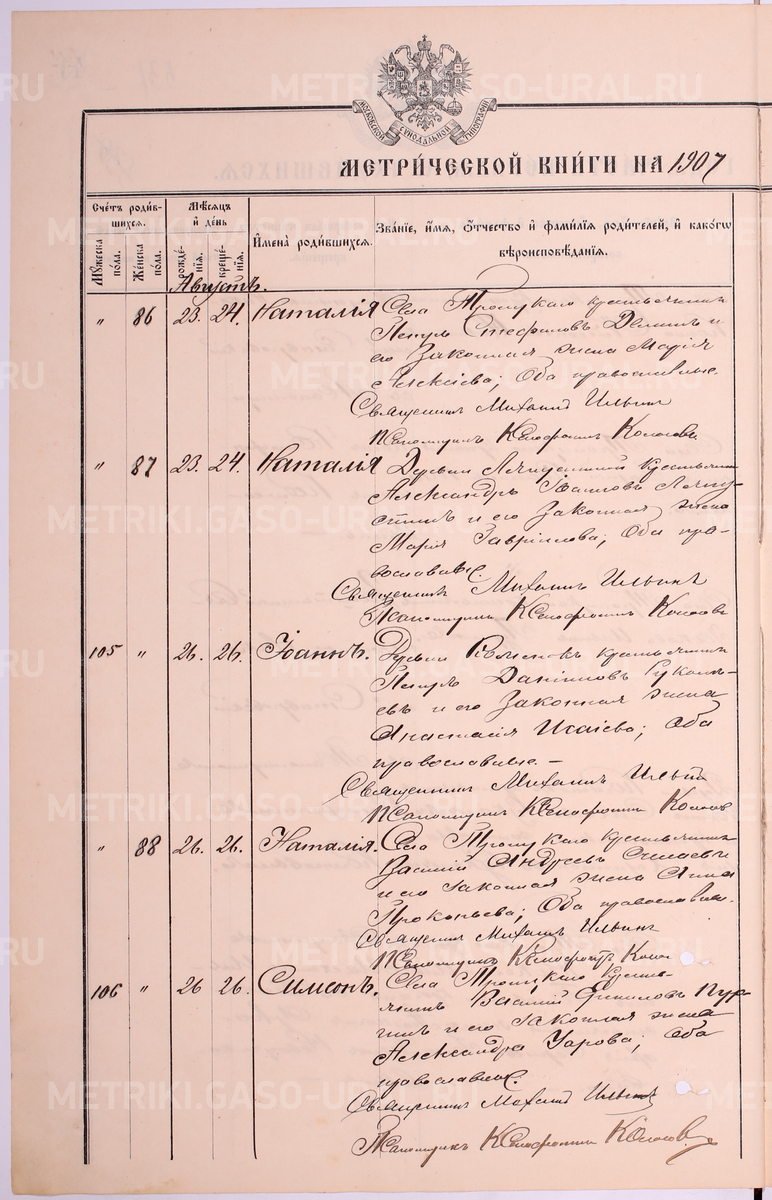 МОСКОВСКОЙ СѴНОДАЛЬНОЙ ТИПОГРАФІИ
МЕТРИ́ЧЕСКОЙ КНИ́ГИ НА 1907
Счетъ роди́в-
шихся.
Му́жеска по́ла.
Же́нска по́ла.
Мѣ́сяцъ
и́ де́нь
рожде́нія.
креще́нія.
И҆мена̀ роди́вшихся.
Зва́ніе, и҆́мя, ѻ҆́тчество и҆ фами́лія роди́телей, и҆ како́гѡ
вѣроисповѣ́данія.
Августъ.
" 86 23. 24. Наталія Села Троицкаго крестьянинъ
Петръ Стефановъ Деминъ и
его законная жена Марія
Алексіева; Оба православные.
Священникъ Михаилъ Ильинъ
Псаломщикъ Ксенофонтъ Кононовъ
" 87 23. 24. Наталія Деревни крестьянинъ
Александръ Іоанновъ
и его законная жена
Марія Гавріилова; Оба пра-
вославные.
Священникъ Михаилъ Ильинъ
Псаломщикъ Ксенофонтъ Кононовъ
105 " 26. 26. Іоаннъ. Деревни крестьянинъ
Петръ Даниловъ
и его законная жена
Анастасія Исаіева; Оба
православные. —
Священникъ Михаилъ Ильинъ
Псаломщикъ Ксенофонтъ Кононовъ
" 88 26. 26. Наталія. Села Троицкаго крестьянинъ
Василій Андреевъ
и его законная жена Анна
Прокопьева; Оба православные.
Священникъ Михаилъ Ильинъ
Псаломщикъ Ксенофонтъ
106 " 26 26. Симеонъ. Села Троицкаго кресть-
янинъ Василій
и его законная жена
Александра Уарова; Оба
православные.
Священникъ Михаилъ Ильинъ
Псаломщикъ Ксенофонтъ Кононовъ
METRIKI.GASO-URAL.RU